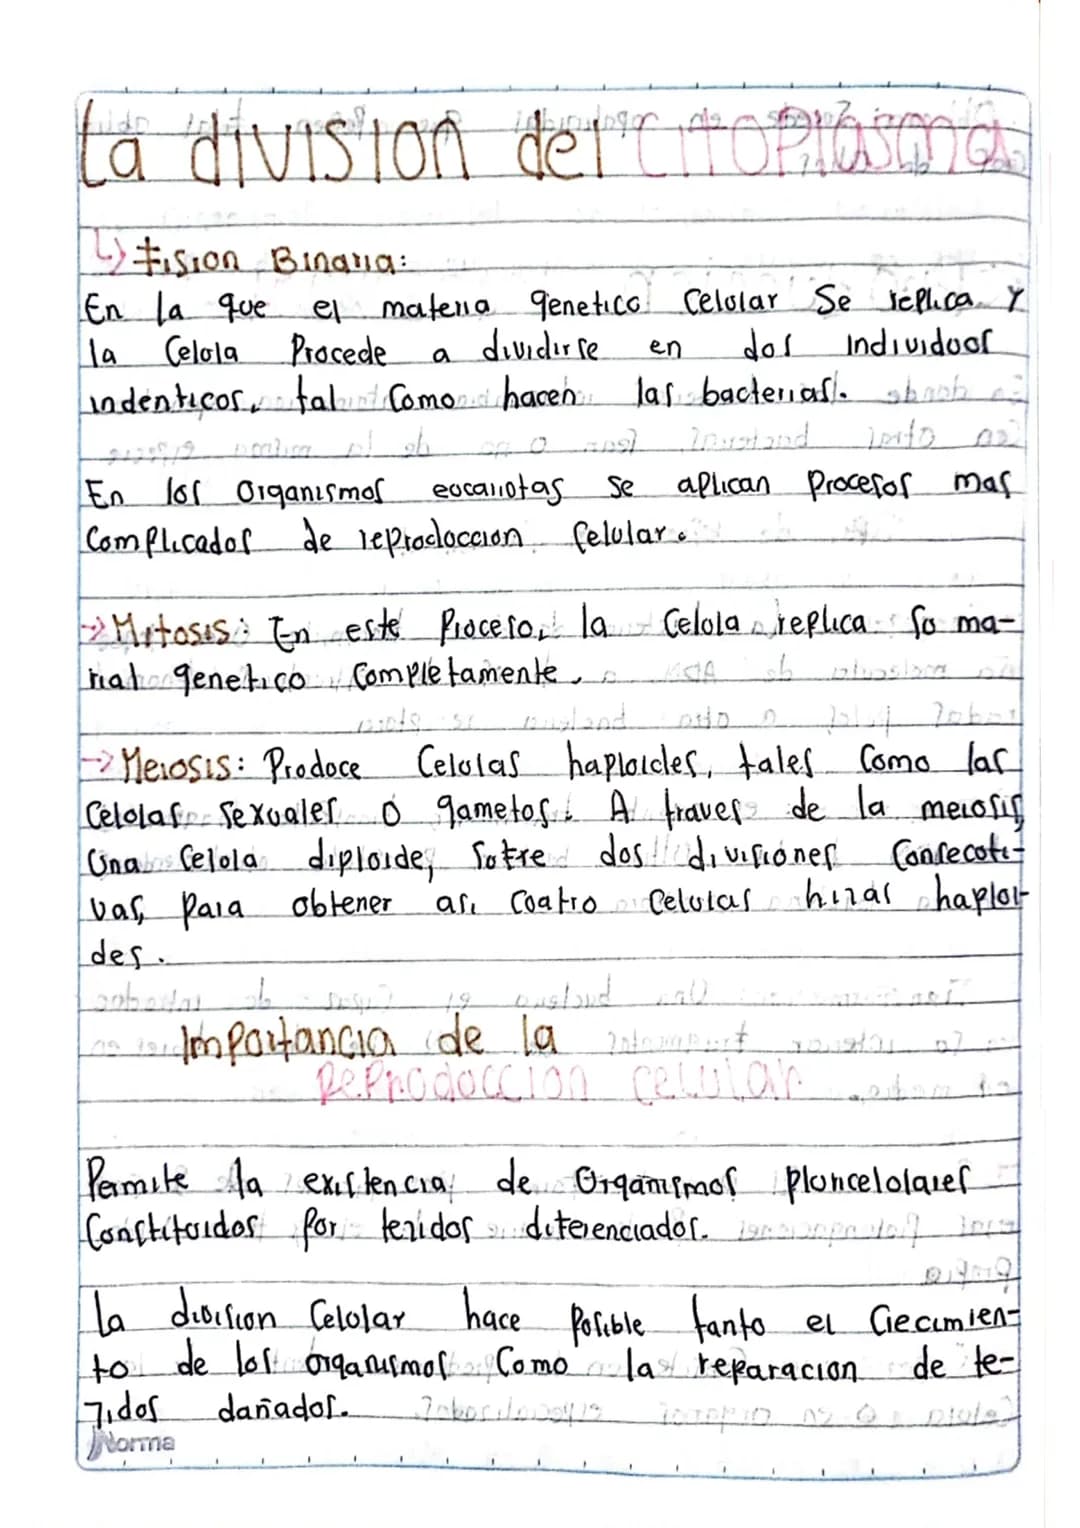 La division del Citoplasma
↳ Fision Binaria:
En la que el materia genetico Celular Se replica Y
la Celula Procede a dividirse en dos individuos
indenticos, tal Como hacen las bacterias.
En los Organismos eucariotas se aplican Procesos mas
Complicados de reproduccion Celular.
→ Mitosis: En este Proceso, la Celula replica Su ma-
rial genetico Completamente.
→ Meiosis: Produce Celulas haploides, tales Como las
Celulas Sexuales O gametos. A traves de la meiosis
Una Celula diploide, Sufre dos divisiones Consecuti-
vas, Para obtener asi Cuatro Celulas hijas haploi-
des.
Importancia de la
Reproduccion Celular
Permite la existencia de Organismos pluricelulares
Constituidos por tejidos diferenciados.
La division Celular hace Posible tanto el Crecimien-
to de los organismos Como la reparacion de te-
jidos dañados.
Norma